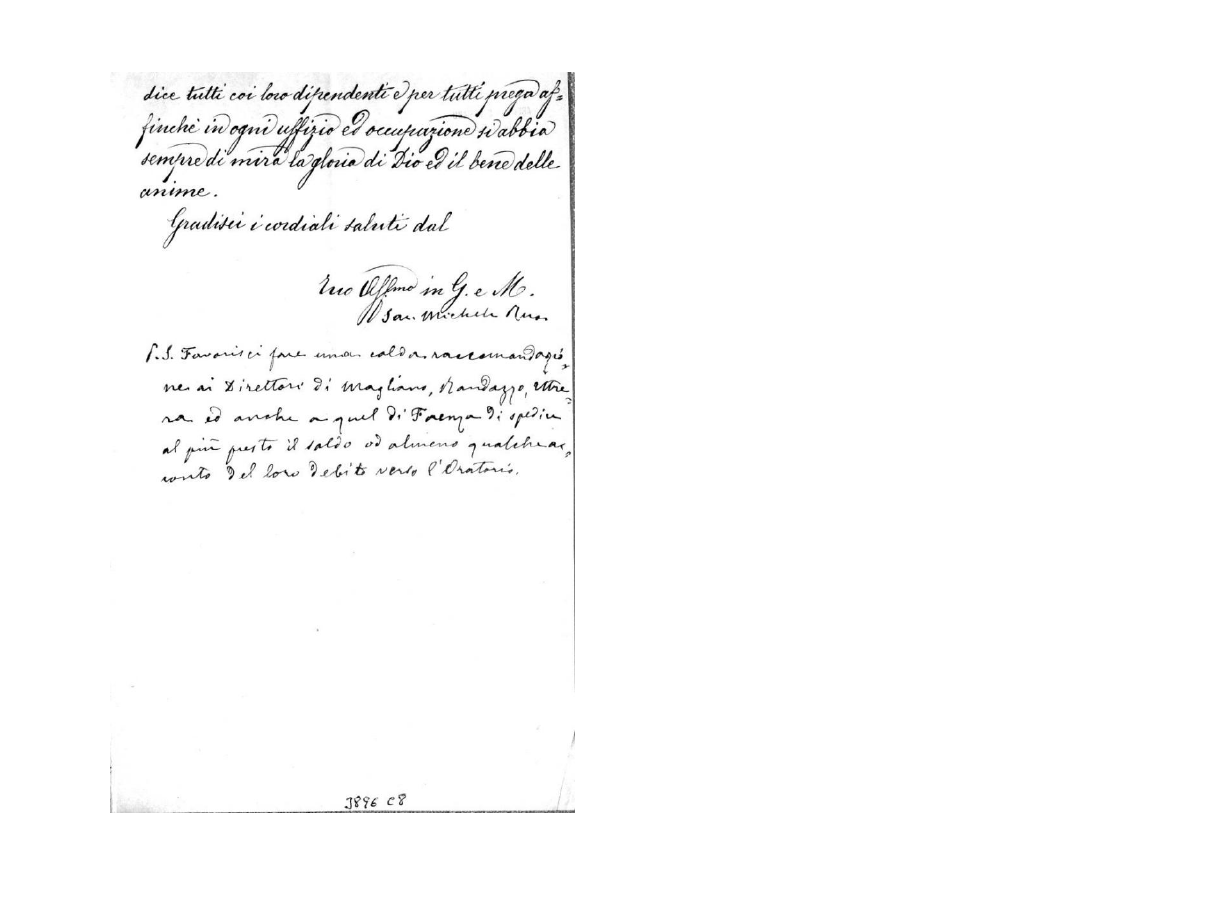 dice tutti coi loro dipendenti e per tutti prega af=
finchè in ogni uffizio ed occupazione si abbia
sempre di mira la gloria di Dio ed il bene delle
anime.
Gradisci i cordiali saluti dal
Tuo Affmo in G. e M.
Sac. Michele Rua
P.S. Favorisci fare una calda raccomandazio=
ne ai Direttori di Magliano, Randazzo, Utre=
ra ed anche a quel di Faenza di spedire
al più presto il saldo od almeno qualche ac=
conto del loro debito verso l'Oratorio.
3896 C8